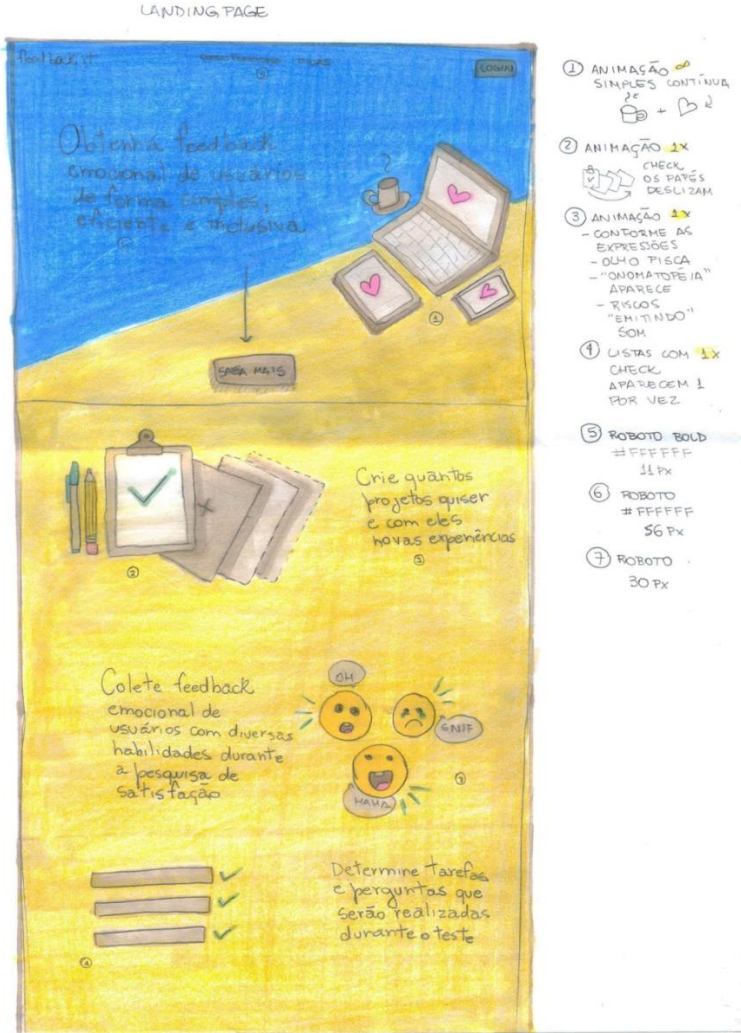 LANDING PAGE
LOGIN
Obtenha feedback
emocional de usuários
de forma simples,
eficiente e inclusiva
SAIBA MAIS
Crie quantos
projetos quiser
e com eles
novas experiências
Colete feedback
emocional de
usuários com diversas
habilidades durante
a pesquisa de
satisfação
OH
SNIF
HAHA
Determine tarefas
e perguntas que
serão realizadas
durante o teste
① ANIMAÇÃO ∞
SIMPLES CONTÍNUA
+
② ANIMAÇÃO 1X
CHECK
OS PAPÉS
DESLIZAM
③ ANIMAÇÃO 1X
- CONFORME AS
EXPRESSÕES
- OLHO PISCA
- "ONOMATOPÉIA"
APARECE
- RISCOS
"EMITINDO"
SOM
④ LISTAS COM 1X
CHECK
APARECEM 1
POR VEZ
⑤ ROBOTO BOLD
#FFFFFF
11 PX
⑥ ROBOTO
#FFFFFF
56 PX
⑦ ROBOTO
30 PX